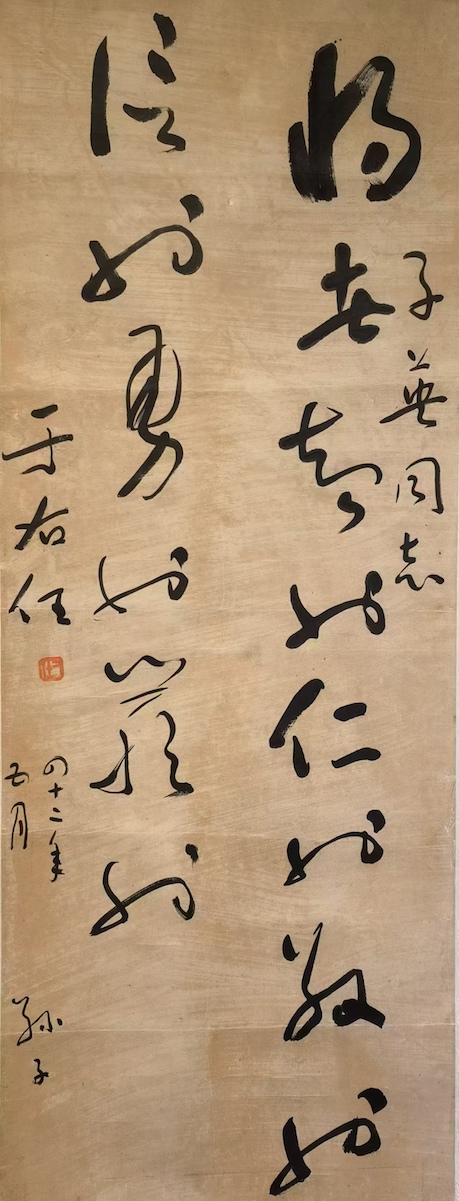 將者智也仁也敬也
子英同志
信也勇也嚴也
于右任
四十二年
五月
孫子